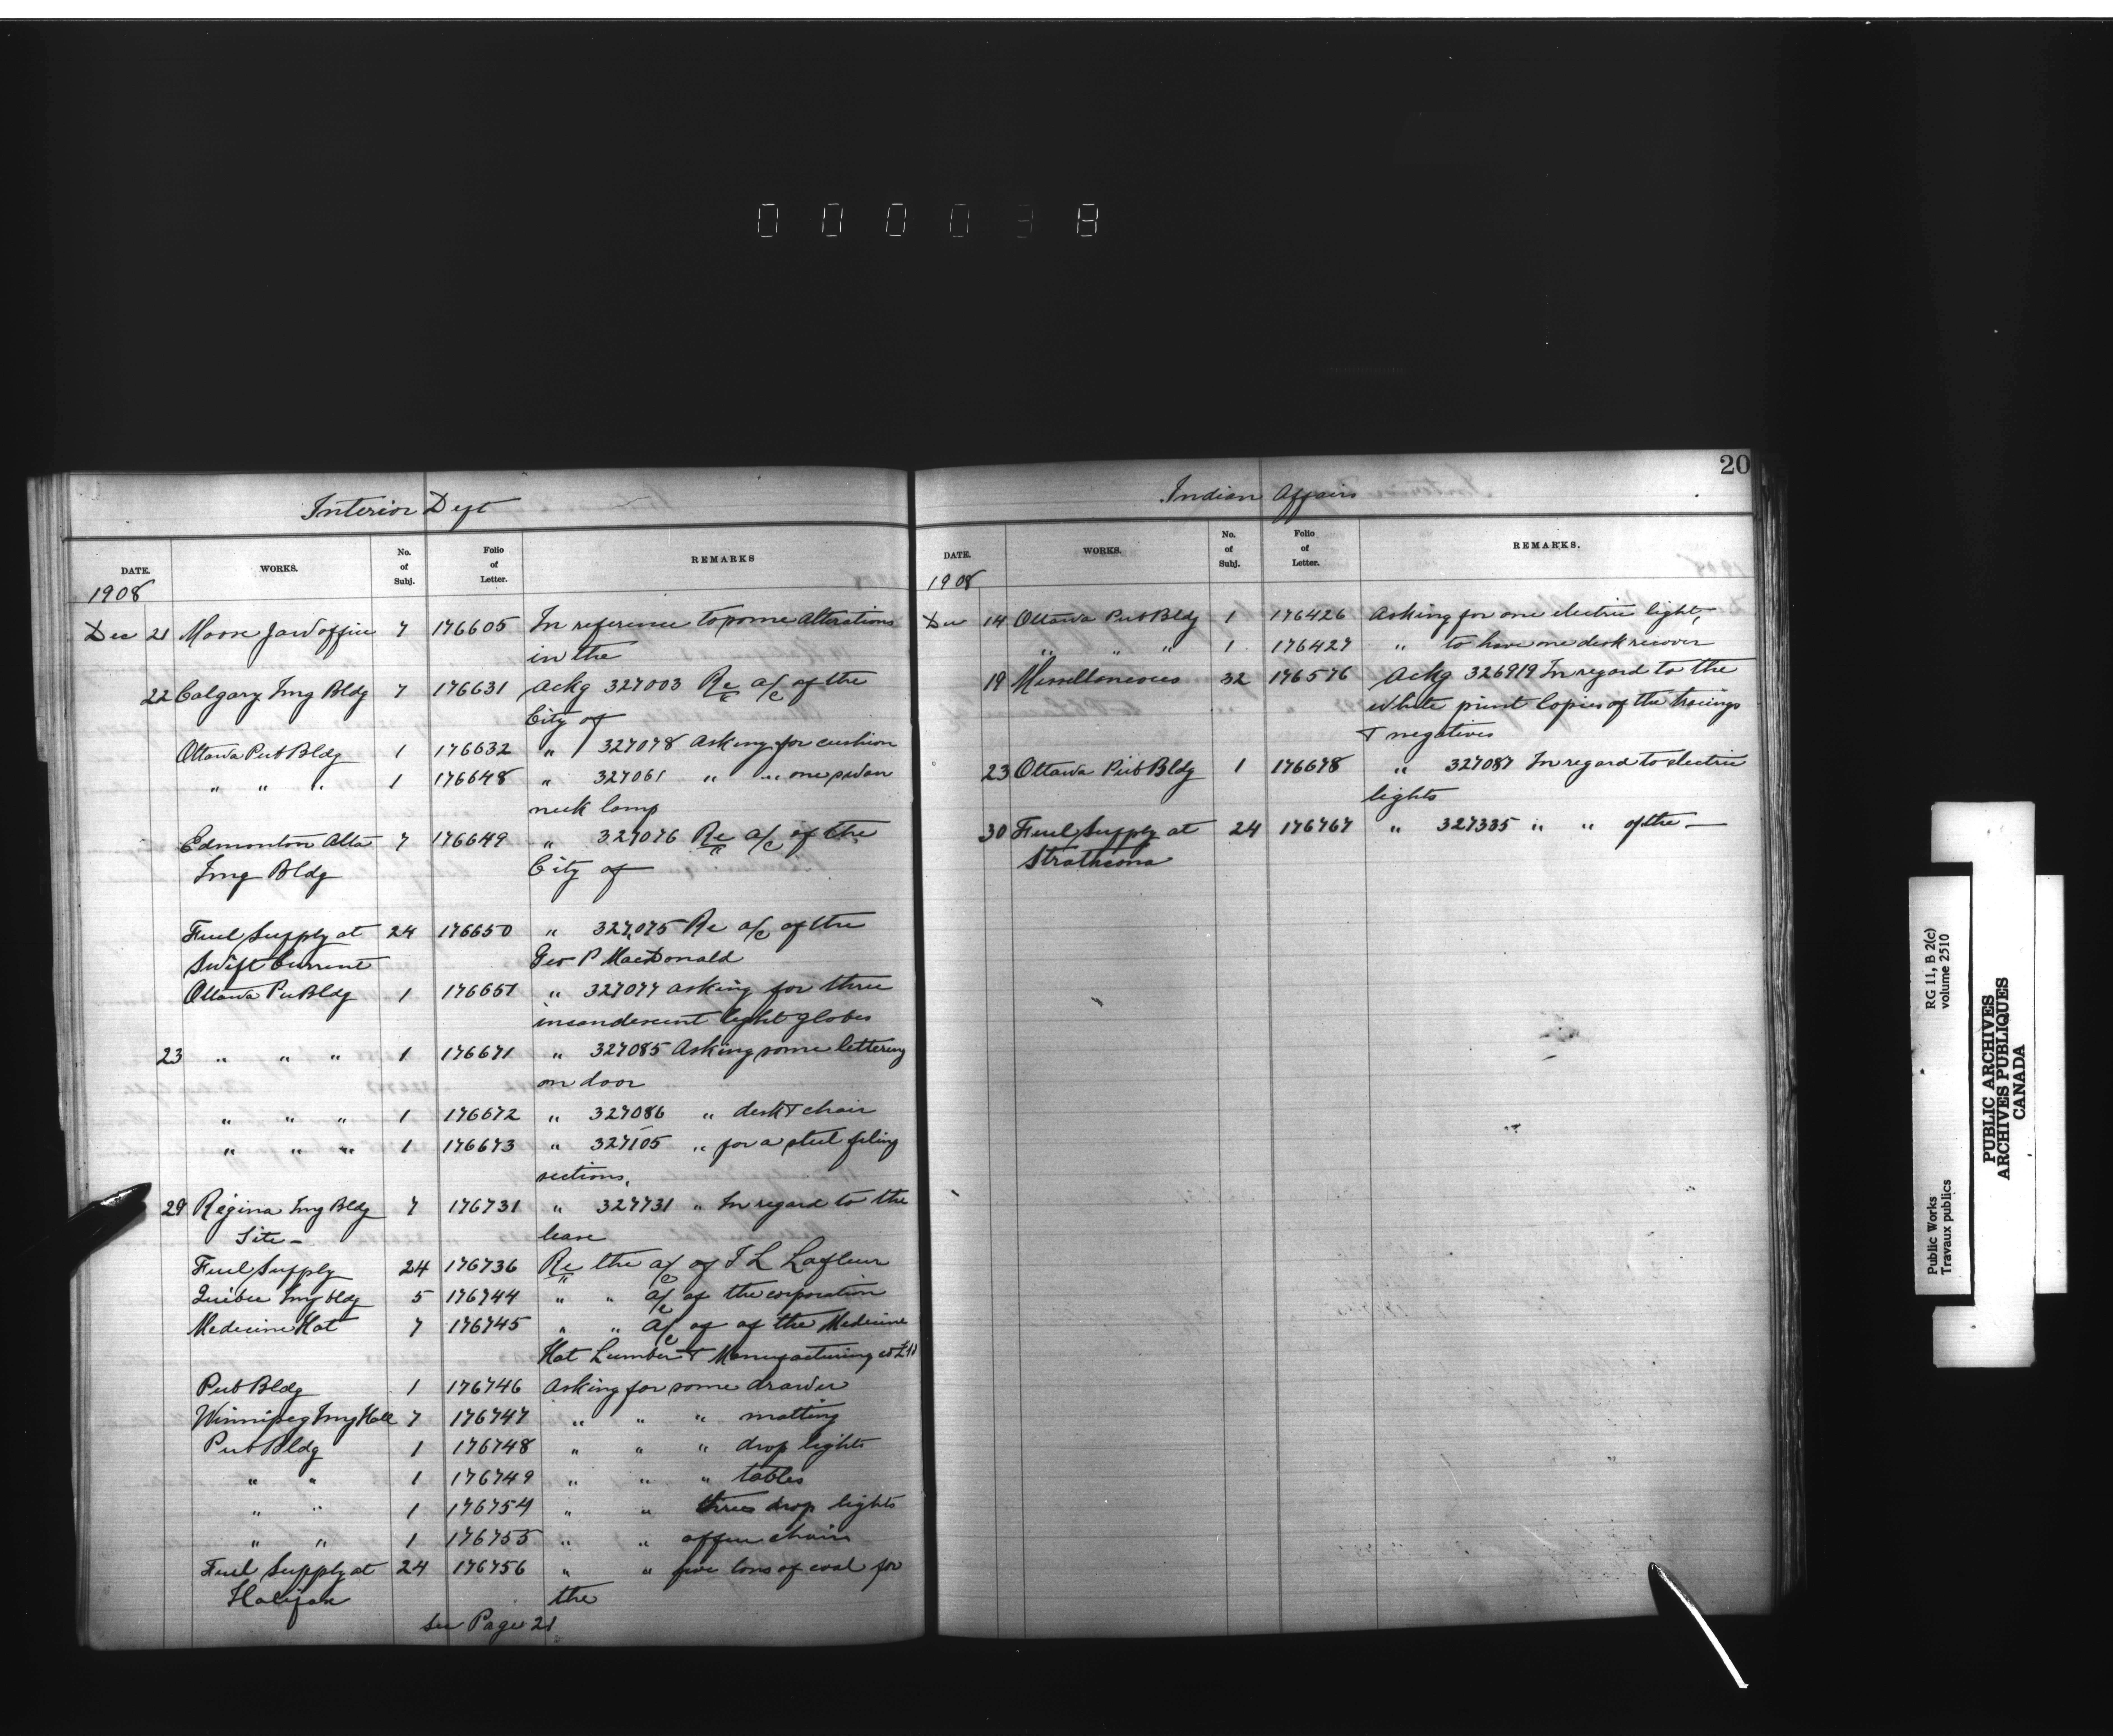 000038
Interior Dept
DATE. WORKS. No. of Subj. Folio of Letter. REMARKS
1908
Dec 21 Moose Jaw office 7 176605 In reference to some alterations
in the
22 Calgary Img Bldg 7 176631 Ackg 327003 Re a/c of the
City of
Ottawa Pub Bldg 1 176632 " 327078 Asking for cushion
" " " 1 176648 " 327061 " " one swan
neck lamp
Edmonton Alta 7 176649 " 327076 Re a/c of the
Img Bldg City of
Fuel Supply at 24 176650 " 327075 Re a/c of the
Swift Current Geo P MacDonald
Ottawa Pu Bldg 1 176651 " 327077 asking for three
incandescent light globes
23 " " " 1 176671 " 327085 Asking some lettering
on door
" " " 1 176672 " 327086 " desk & chair
" " " 1 176673 " 327105 " for a steel filing
sections.
29 Regina Img Bldg 7 176731 " 327731 " In regard to the
Site - lease
Fuel Supply 24 176736 Re the a/c of J L Lafleur
Quebec Img bldg 5 176744 " " a/c of the corporation
Medicine Hat 7 176745 " " a/c of of the Medicine
Hat Lumber & Manufacturing co Ltd
Pub Bldg 1 176746 Asking for some drawer
Winnipeg Img Hall 7 176747 " " " matting
Pub Bldg 1 176748 " " " drop lights
" " 1 176749 " " " tables
" " 1 176754 " " three drop lights
" " 1 176755 " " office chairs
Fuel Supply at 24 176756 " " five tons of coal for
Halifax the
see Page 21
20
Indian Affairs
DATE. WORKS. No. of Subj. Folio of Letter. REMARKS.
1908
Dec 14 Ottawa Pub Bldg 1 176426 Asking for one electric light,
" " " 1 176427 " to have one desk recover
19 Miscellaneous 32 176576 Ackg 326919 In regard to the
white print copies of the tracings
& negatives
23 Ottawa Pub Bldg 1 176678 " 327087 In regard to electric
lights
30 Fuel Supply at 24 176767 " 327335 " " of the -
Strathcona
RG 11, B 2(c)
volume 2510
PUBLIC ARCHIVES
ARCHIVES PUBLIQUES
CANADA
Public Works
Travaux publics